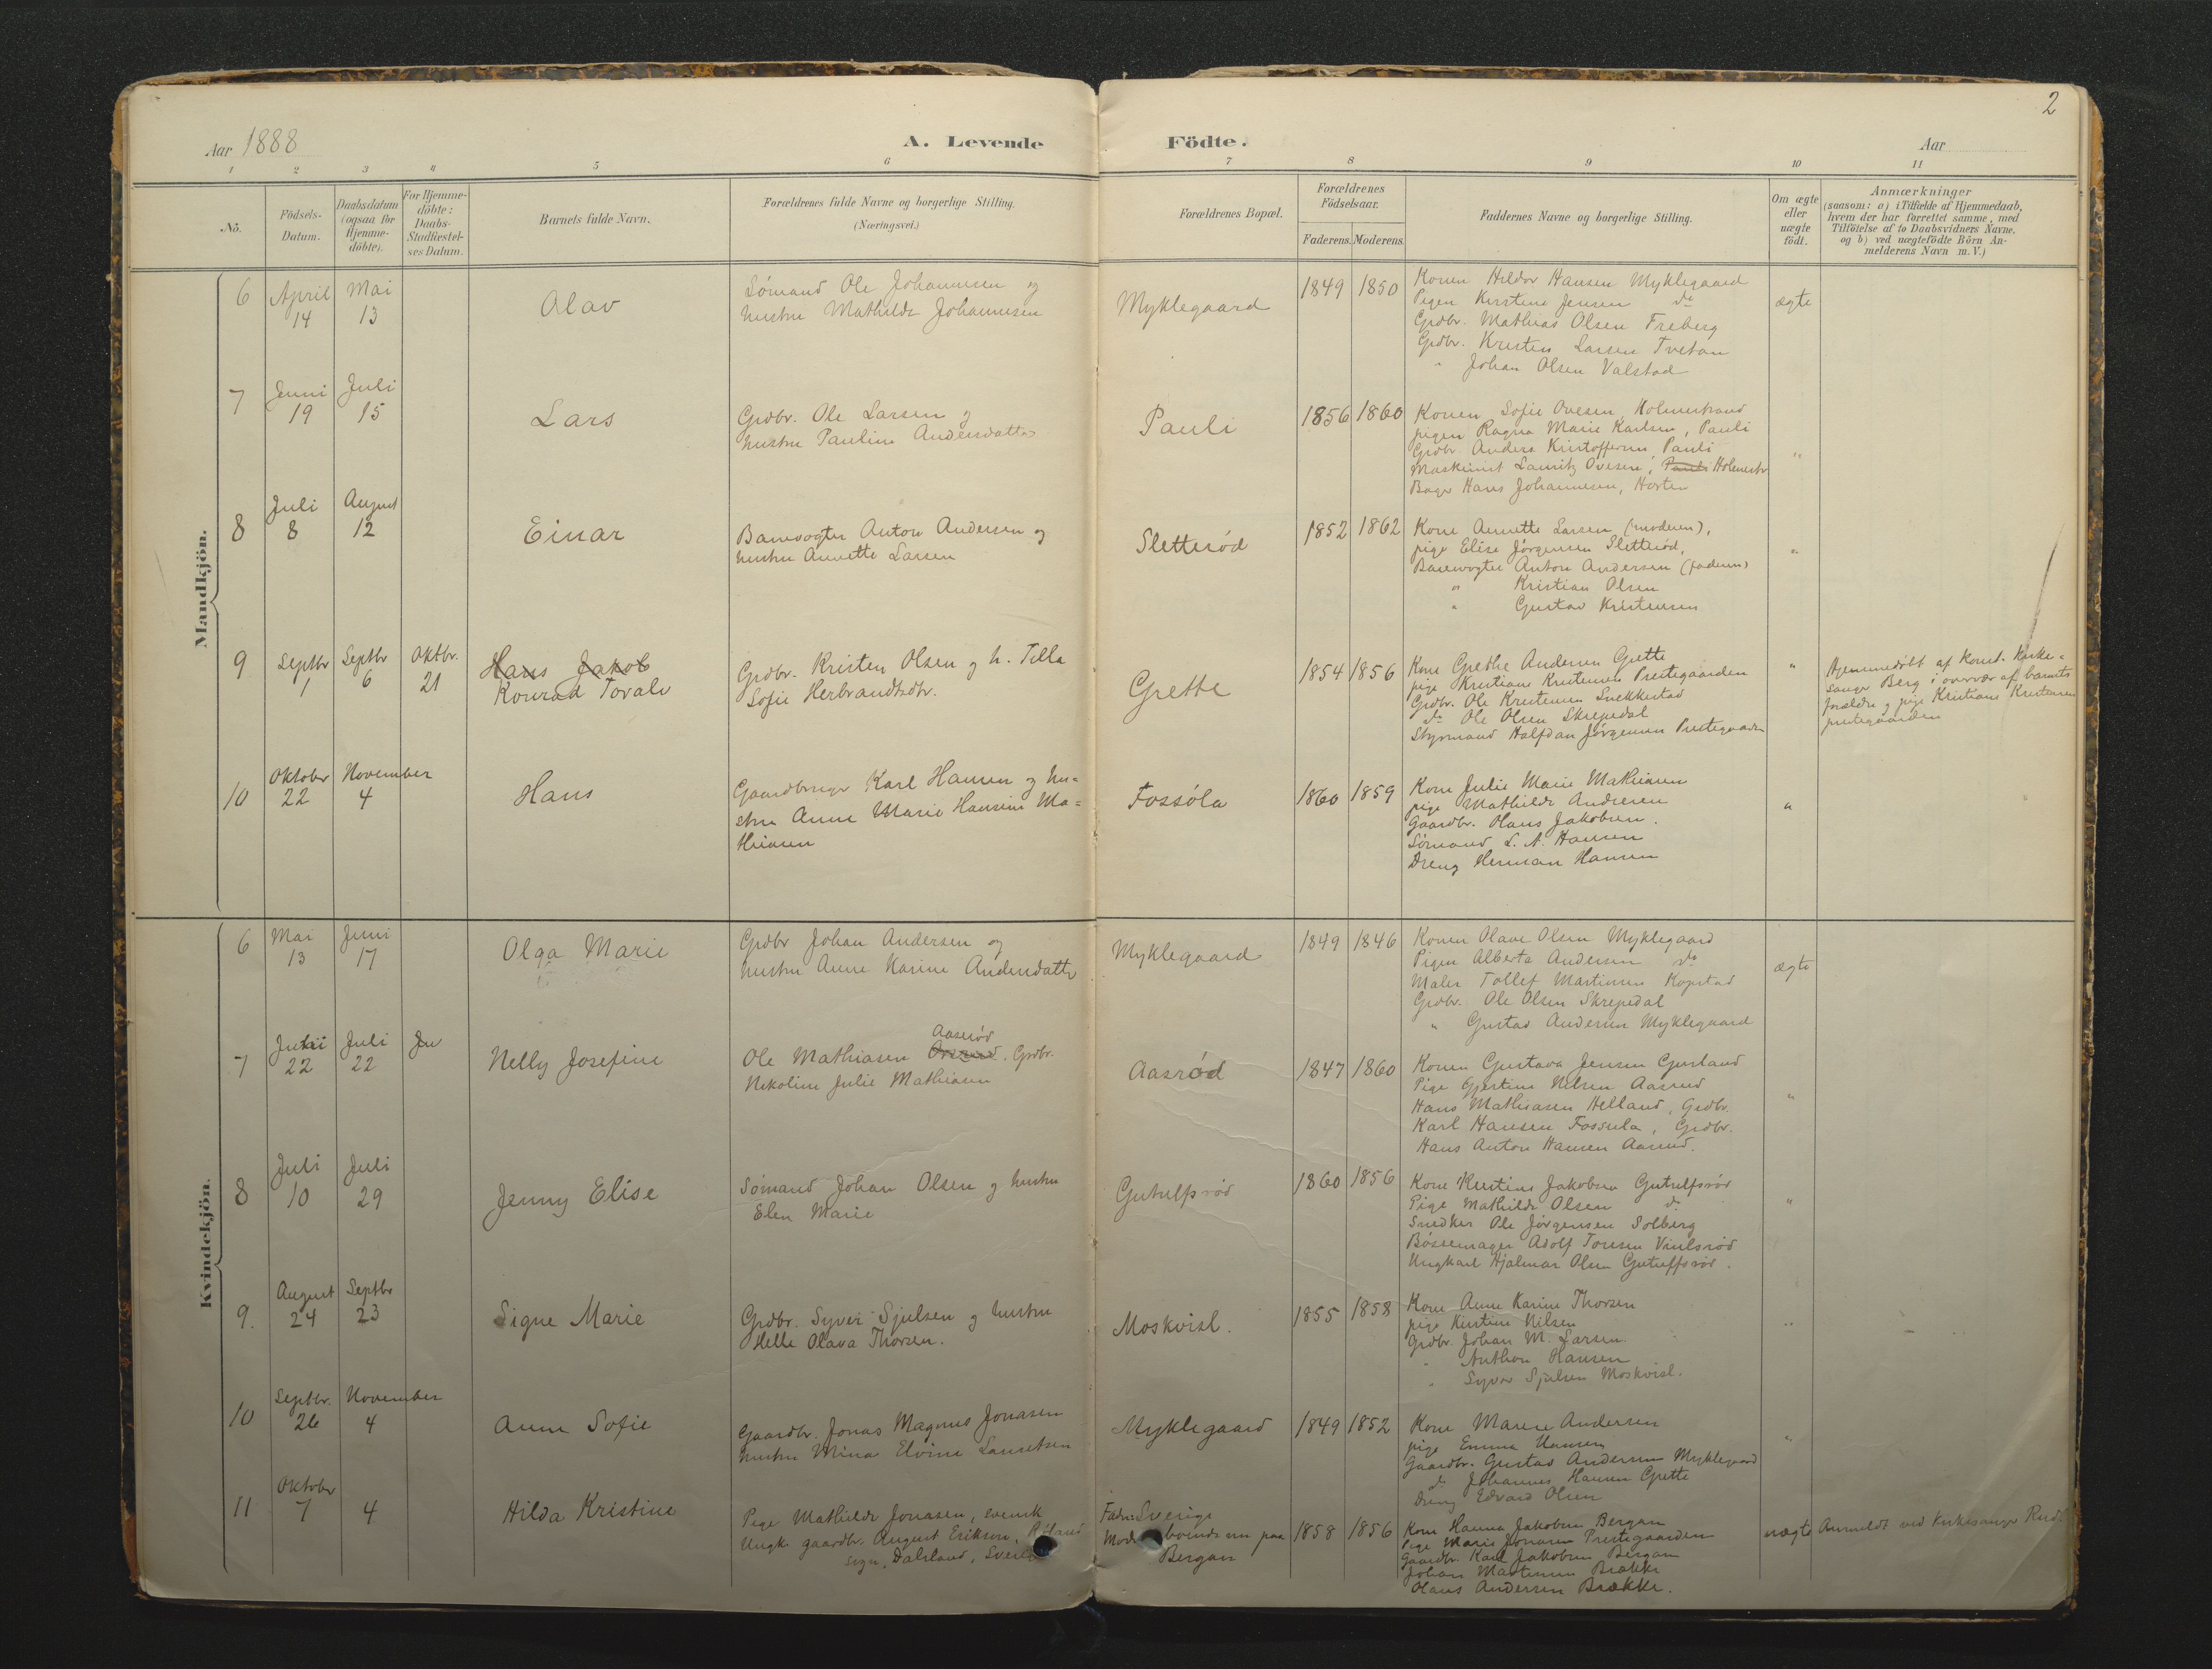 2
Aar 1888
A. Levende Födte.
Aar
1 2 3 4 5 6 7 8 9 10 11
No.
Födsels-Datum.
Daabsdatum (ogsaa for Hjemme-döbte).
For Hjemme-döbte: Daabs-Stadfæstel-ses Datum.
Barnets fulde Navn.
Forældrenes fulde Navne og borgerlige Stilling.
(Næringsvei.)
Forældrenes Bopæl.
Forældrenes Födselsaar.
Faderens. Moderens.
Faddernes Navne og borgerlige Stilling.
Om ægte eller uægte födt.
Anmærkninger
(saasom: a) i Tilfælde af Hjemmedaab,
hvem der har forrettet samme, med
Tilföielse af to Daabsvidners Navne,
og b) ved uægtefödte Börn An-
melderens Navn m. V.)
Mandkjön.
6 April 14 Mai 13 Olav
Sömand Ole Johannesen og
hustru Mathilde Johannesen
Myklegaard 1849 1850
Konen Hildor Hansen Myklegaard
Pigen Kirstine Jensen do
Grdbr. Mathias Olsen Freberg
Grdbr. Kresten Larsen Tvetan
" Johan Olsen Valstad
ægte
7 Juni 19 Juli 15 Lars
Grdbr. Ole Larsen og
hustru Pauline Andersdatter
Pauli 1856 1860
Konen Sofie Ovesen, Holmestrand
pigen Ragna Marie Karlsen, Pauli
Grdbr. Anders Kristoffersen, Pauli
Maskinist Lauritz Ovesen, Pauli Holmestr
Bager Hans Johannesen, Horten
"
8 Juli 8 August 12 Einar
Banevogter Anton Andersen og
hustru Annette Larsen
Sletteröd 1852 1862
Kone Annette Larsen (moderen),
pige Elise Jörgensen Sletteröd,
Banevogter Anton Andersen (faderen)
" Kristian Olsen
" Gustav Kristensen
"
9 Septbr 1 Septbr 6 Oktbr. 21 Hans Jakob
Konrad Toralv
Grdbr. Kristen Olsen og h. Tilla
Sofie Herbrandtsdtr.
Grette 1854 1856
Kone Grethe Andersen Grette
pige Kristiane Kristensen Prestegaarden
Grdbr. Ole Kristensen Snekkestad
do Ole Olsen Skrepedal
Styrmand Halfdan Jörgensen Prestegaarden
"
Hjemmedöbt af Konst. Kirke-
sanger Berg i overvær af barnets
forældre og pige Kristiane Kristensen
prestegaarden
10 Oktober 22 November 4 Hans
Gaardbruger Karl Hansen og hu-
stru Anne Marie Hansine Ma-
thiasen
Fossöla 1860 1859
Kone Julie Marie Mathiasen
pige Mathilde Andresen
Gaardbr. Hans Jakobsen.
Sömand L. A. Hansen
Dreng Herman Hansen
"
Kvindekjön.
6 Mai 13 Juni 17 Olga Marie
Grdbr Johan Andersen og
hustru Anne Karine Andersdatter
Myklegaard 1849 1846
Konen Olave Olsen Myklegaard
Pigen Alberta Andersen do
Maler Tollef Martinsen Kopstad
Grdbr. Ole Olsen Skrepedal
" Gustav Andersen Myklegaard
ægte
7 22 Juli 22 Nelly Josefine
Aaseröd
Ole Mathiasen Grdbr.
Nikoline Julie Mathiasen
Aasröd 1847 1860
Konen Gustava Jensen Gusland
Pige Gjertine Nilsen Aasrud
Hans Mathiasen Helland, Grdbr.
Karl Hansen Fossula, Grdbr.
Hans Anton Hansen Aasrud.
"
8 Juli 10 Juli 29 Jenny Elise
Sömand Johan Olsen og hustru
Elen Marie
Gutulfsröd 1860 1856
Kone Kirstine Jakobsen Gutulfsröd
Pige Mathilde Olsen do
Snedker Ole Jörgensen Solberg
Bössemager Adolf Toresen Vinlsröd
Ungkarl Hjalmar Olsen Gutulfsröd.
"
9. August 24 Septbr 23 Signe Marie
Grdbr. Syver Sjulsen og hustru
Helle Olava Thorsen.
Moskvisl. 1855 1858
Kone Anne Karine Thorsen
pige Kirstine Nilsen
Grdbr. Johan M. Larsen
" Anthon Hansen
" Syver Sjulsen Moskvisl.
"
10 Septbr. 26 November 4 Anne Sofie
Gaardbr. Jonas Magnus Jonasen
hustru Mina Elvine Lauretsen
Myklegaard 1849 1852
Kone Maren Andersen
pige Emma Hansen
Gaardbr. Gustav Andersen Myklegaard
do Johannes Hansen Grette
Dreng Edvard Olsen
"
11 Oktober 7 4 Hilda Kristine
Pige Mathilde Jonasen, svensk
Ungk. gaardbr. August Erikson,
sogn, Dalsland,
Fader: Sverige
boende nu paa
Bergan
1858 1856
Kone Hanna Jakobsen Bergan
Pige Marie Jonasen Prestegaarden
Gaardbr. Karl Jakobsen Bergan
Johan Martinsen Brække
Olaus Andersen Brække.
uægte
Anmeldt ved Kirkesanger Rud.